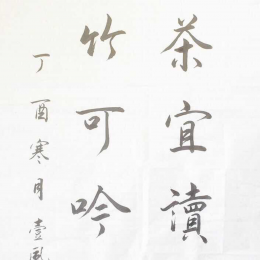 茶宜讀
竹可吟
丁酉寒月壹風